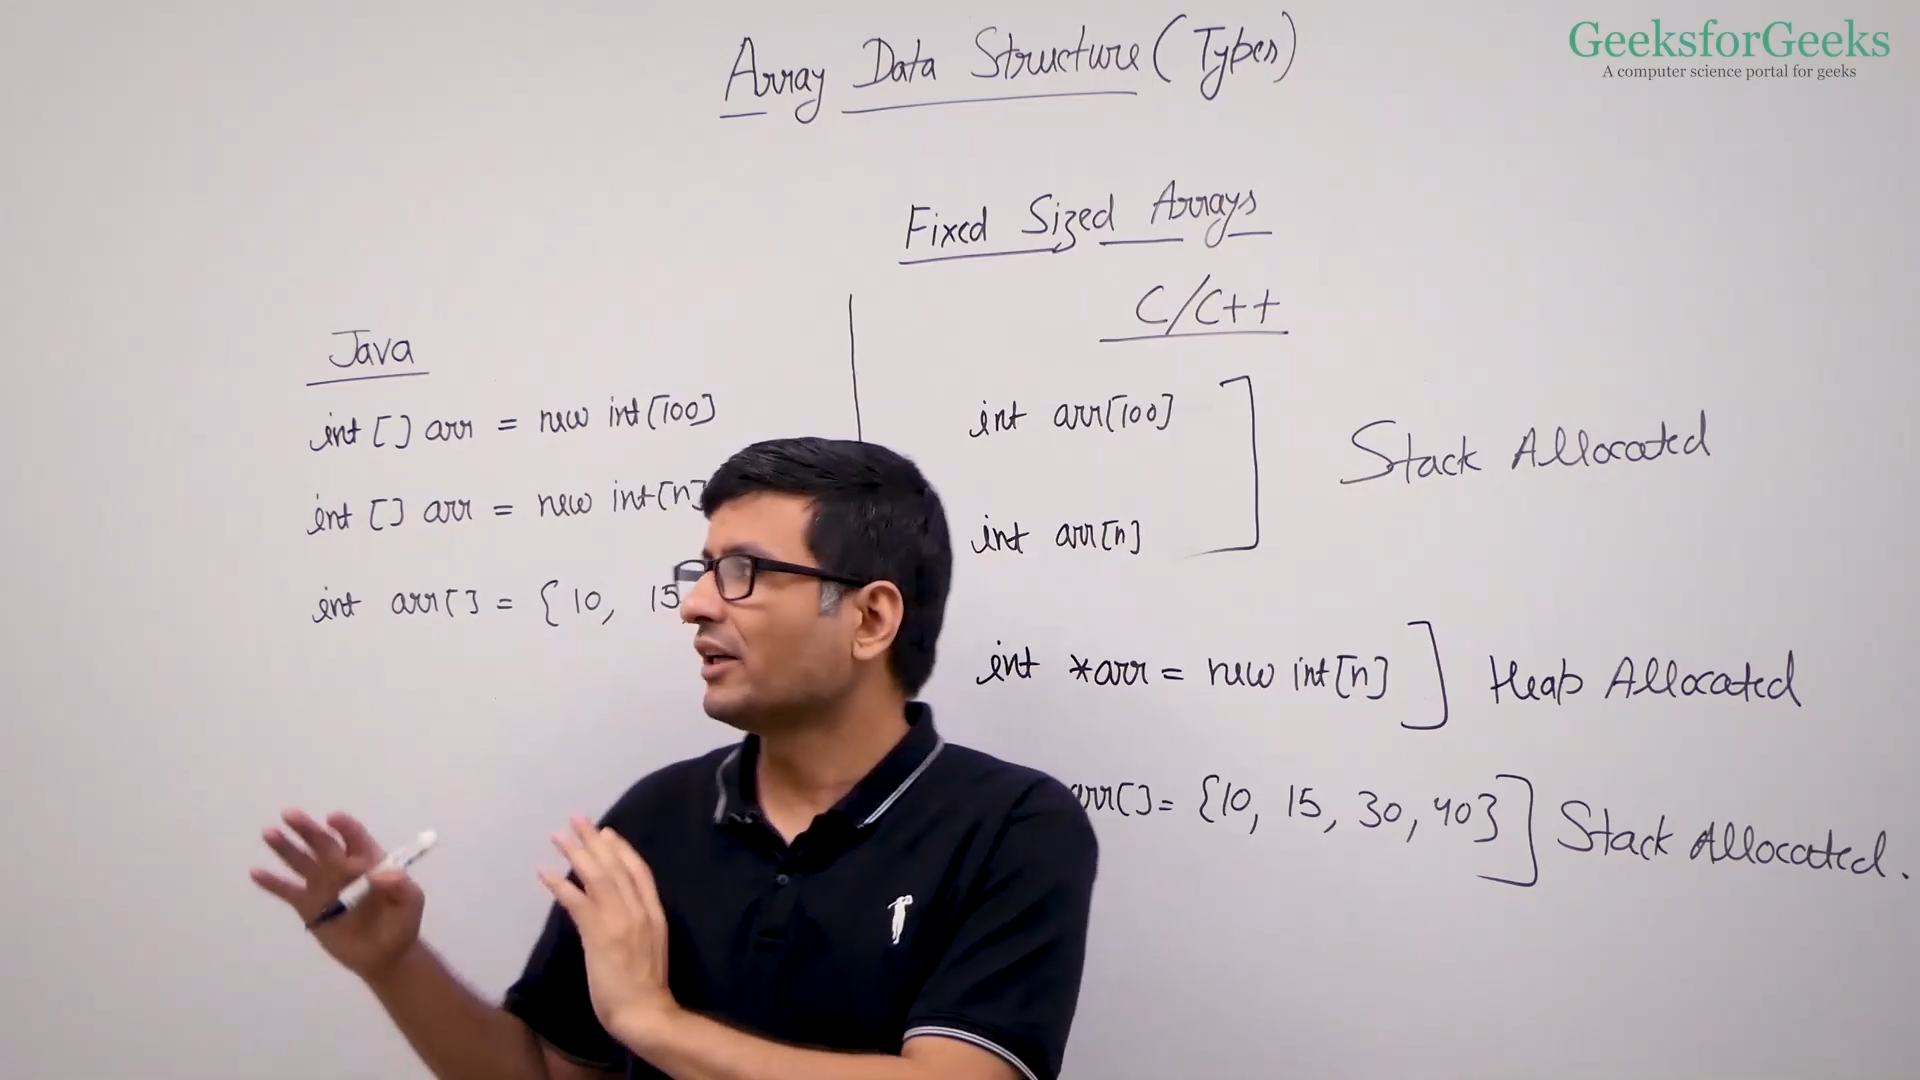 GeeksforGeeks
A computer science portal for geeks
Array Data Structure (Types)
Fixed Sized Arrays
Java
int [] arr = new int[100]
int [] arr = new int[n]
int arr[] = {10, 15
C/C++
int arr[100]
int arr[n]
Stack Allocated
int *arr = new int[n]
Heap Allocated
arr[] = {10, 15, 30, 40}
Stack Allocated.